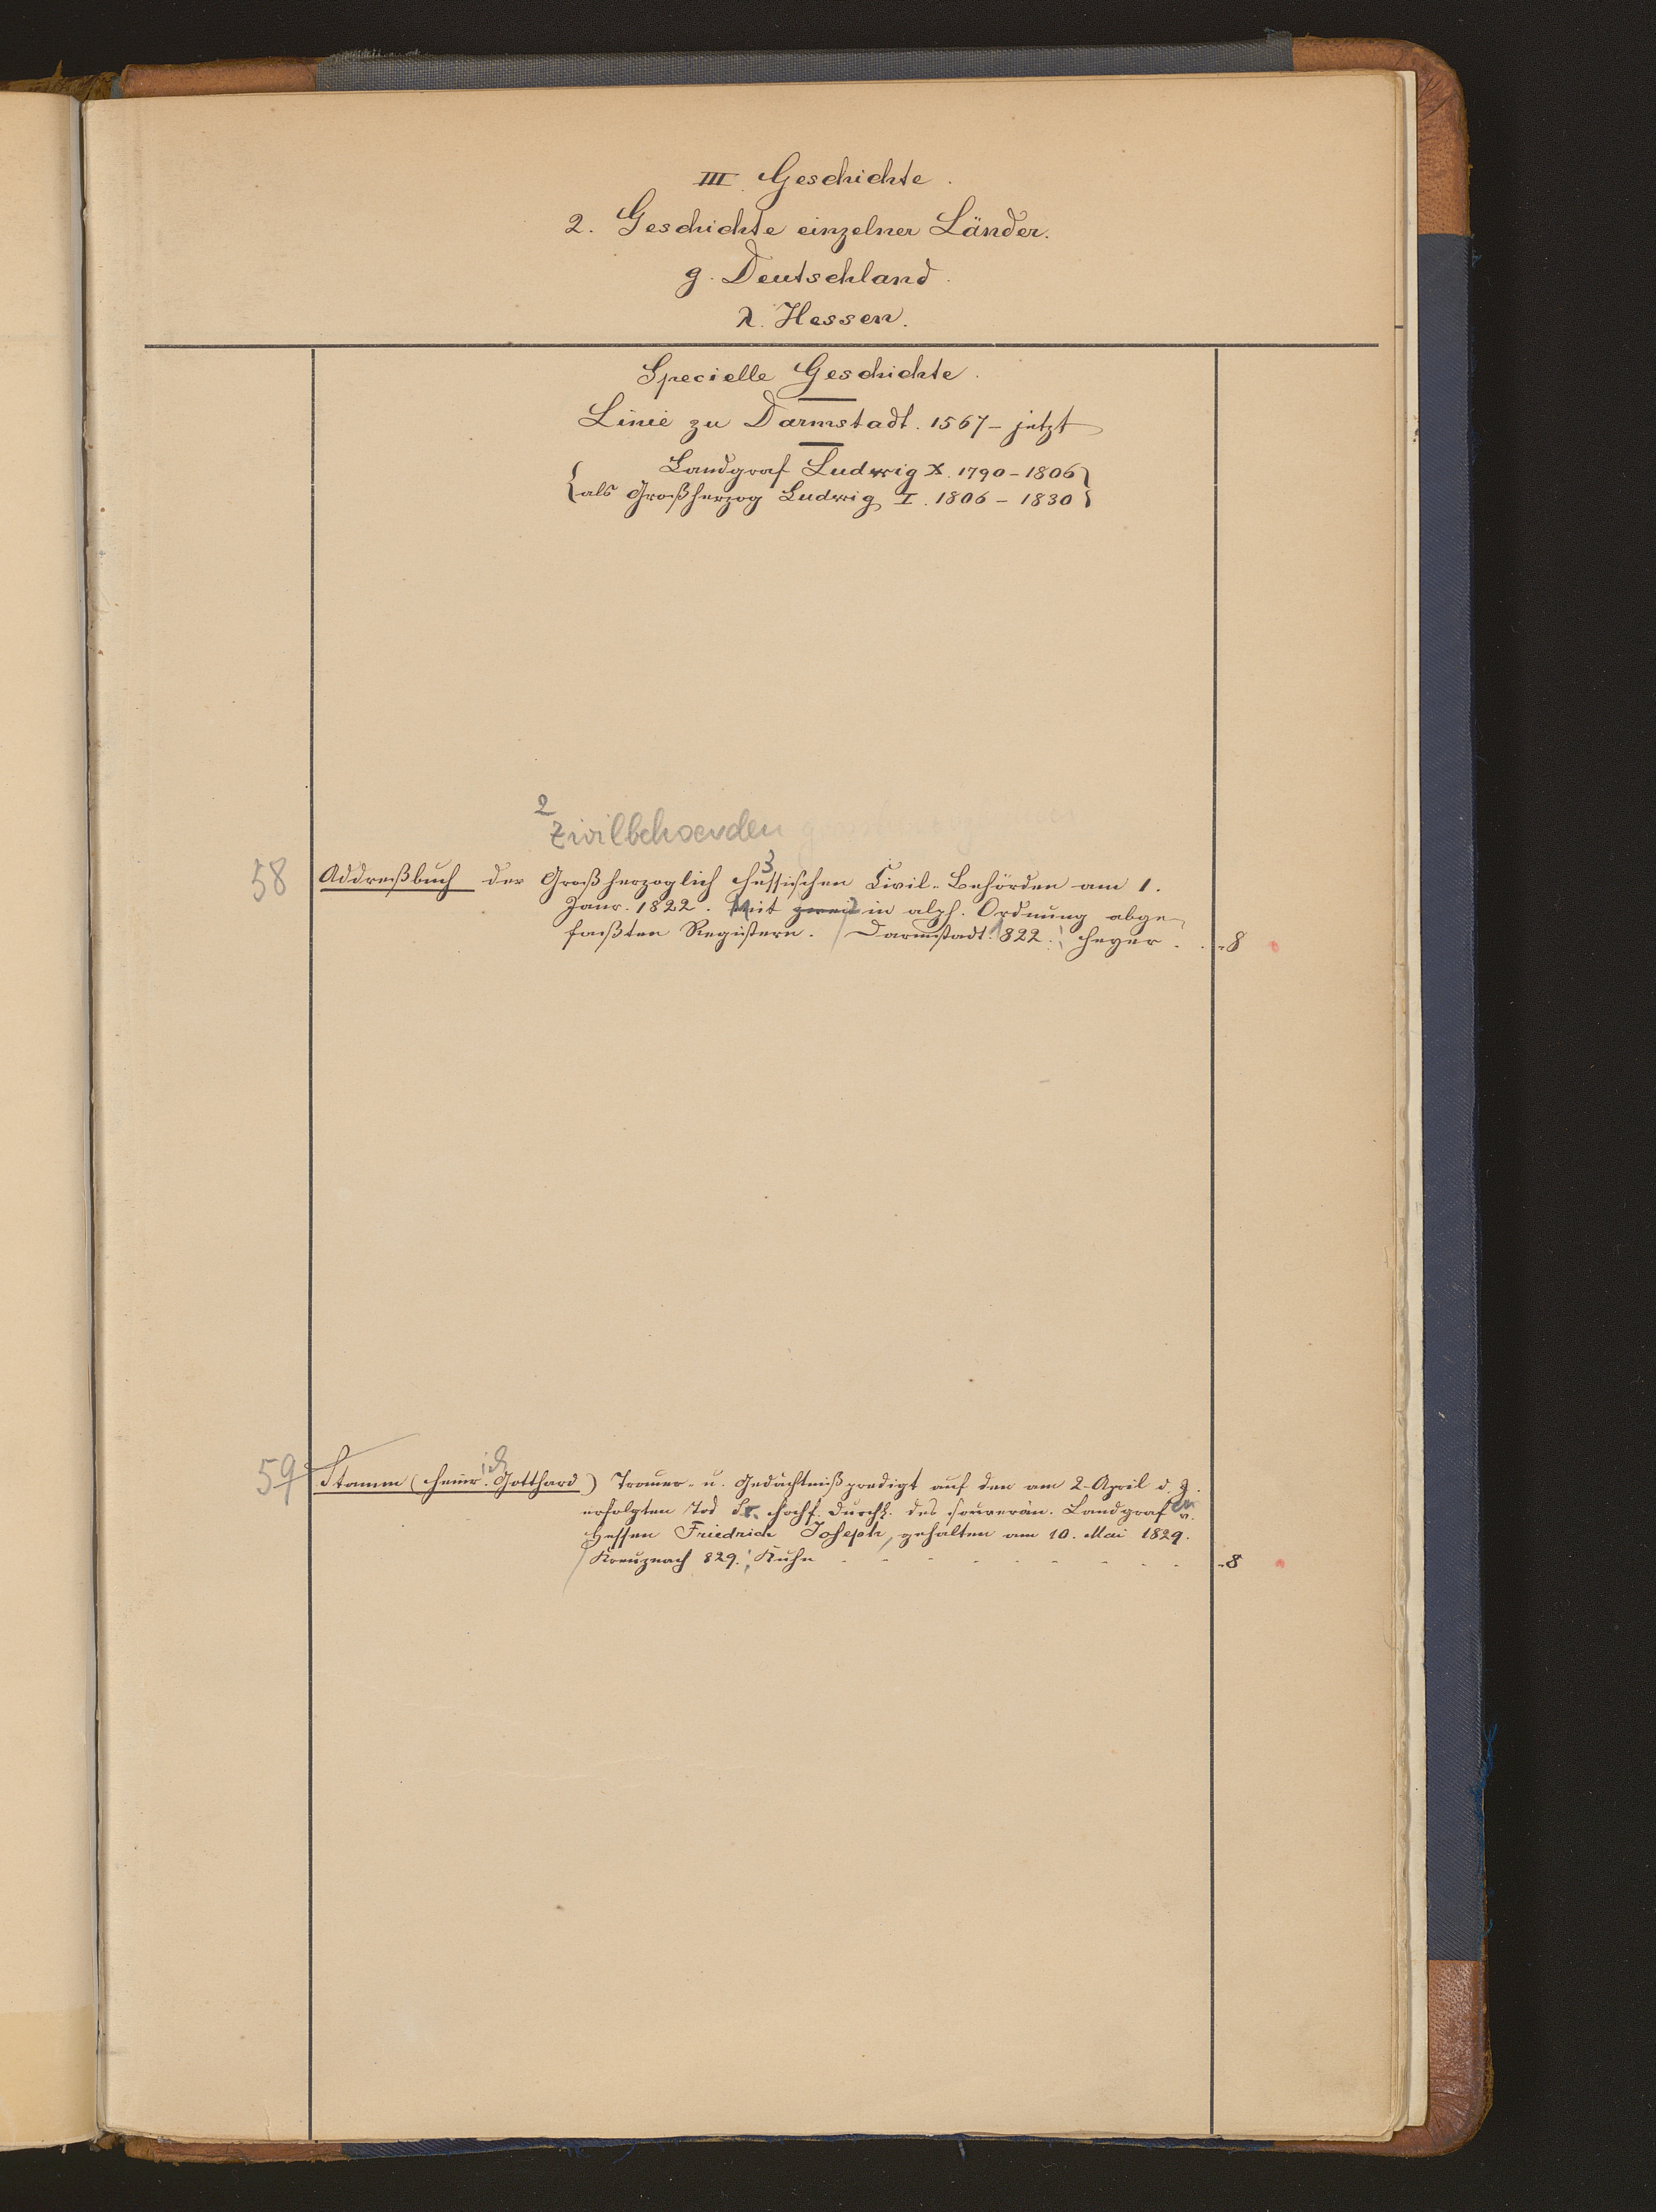 III. Geschichte.
2. Geschichte einzelner Länder.
g. Deutschland.
λ. Hessen.
Specielle Geschichte.
Linie zu Darmstadt. 1567 - jetzt
Landgraf Ludwig X. 1790 - 1806
als Großherzog Ludwig I. 1806 - 1830
2
Zivilbehoerden
3
58 Addreßbuch der Großherzoglich Hessischen Civil-Behörden am 1.
Janr. 1822. Mit zwei 2 in alph. Ordnung abge-
faßten Registern. / Darmstadt. 1822. Heyer. . . 8
59 Stamm (Heinrich Gotthard) Trauer- u. Gedächtnißpredigt auf den am 2. April d. J.
erfolgten Tod Sr. Hochf. Durchl. des souverän. Landgrafen v.
Hessen Friedrich Joseph, gehalten am 10. Mai 1829.
/ Kreuznach 829. Kuhn - - - - - - - - - 8